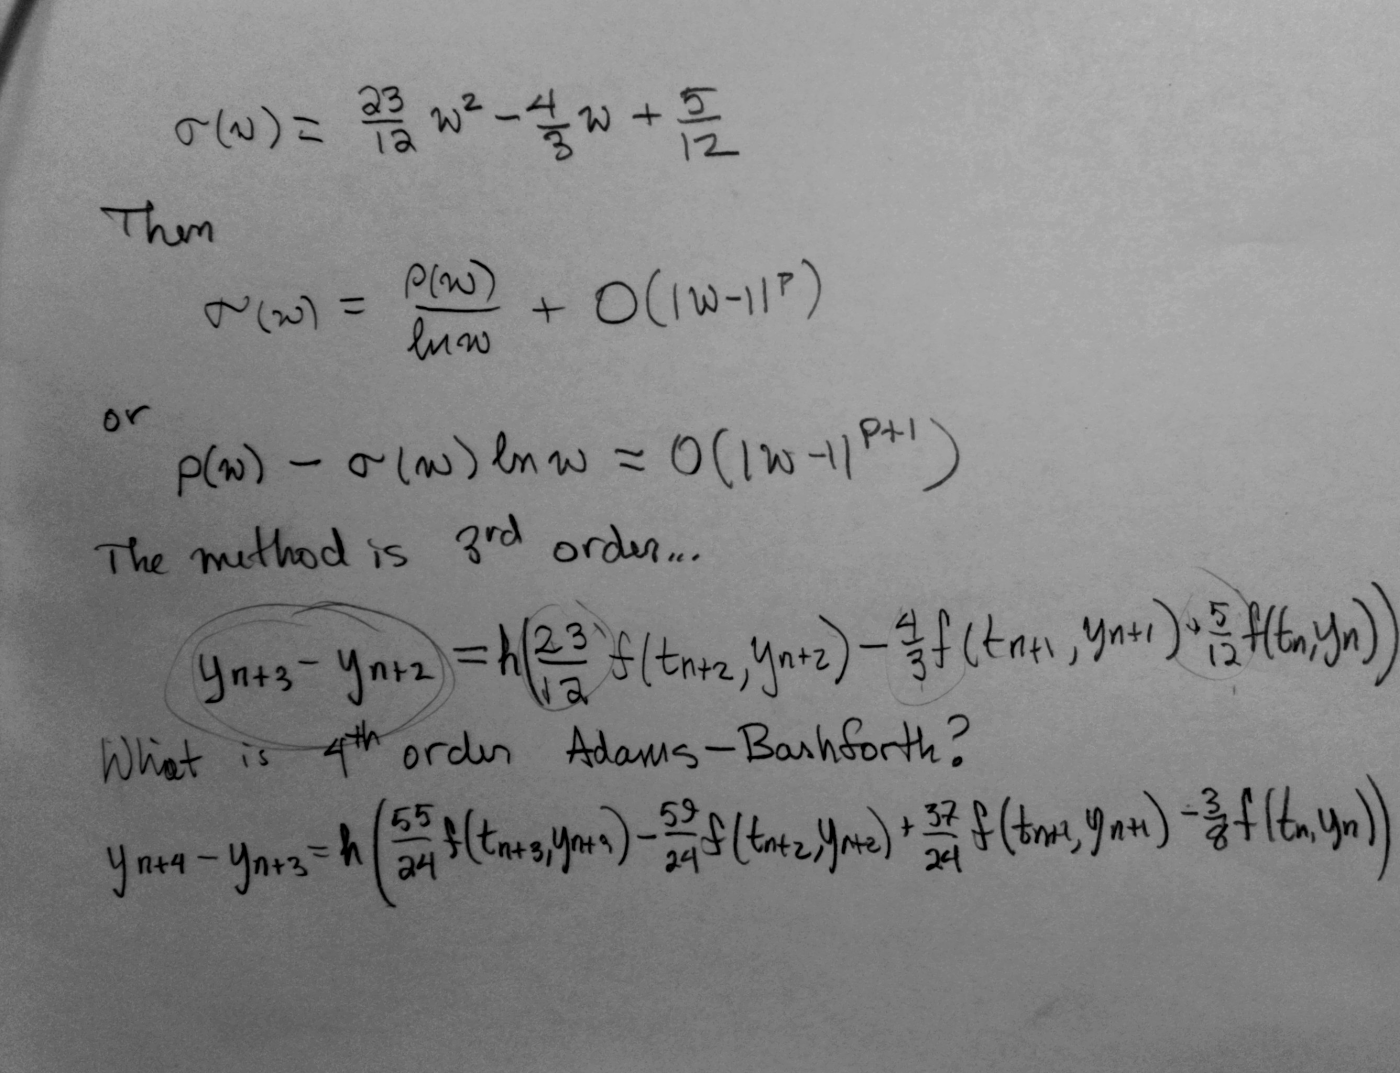 σ(w) = 23/12 w² - 4/3 w + 5/12
Then
σ(w) = ρ(w)/ln w + O(|w-1|^p)
or
ρ(w) - σ(w) ln w = O(|w-1|^{p+1})
The method is 3rd order...
y_{n+3} - y_{n+2} = h(23/12 f(t_{n+2}, y_{n+2}) - 4/3 f(t_{n+1}, y_{n+1}) + 5/12 f(t_n, y_n))
What is 4th order Adams-Bashforth?
y_{n+4} - y_{n+3} = h(55/24 f(t_{n+3}, y_{n+3}) - 59/24 f(t_{n+2}, y_{n+2}) + 37/24 f(t_{n+1}, y_{n+1}) - 3/8 f(t_n, y_n))